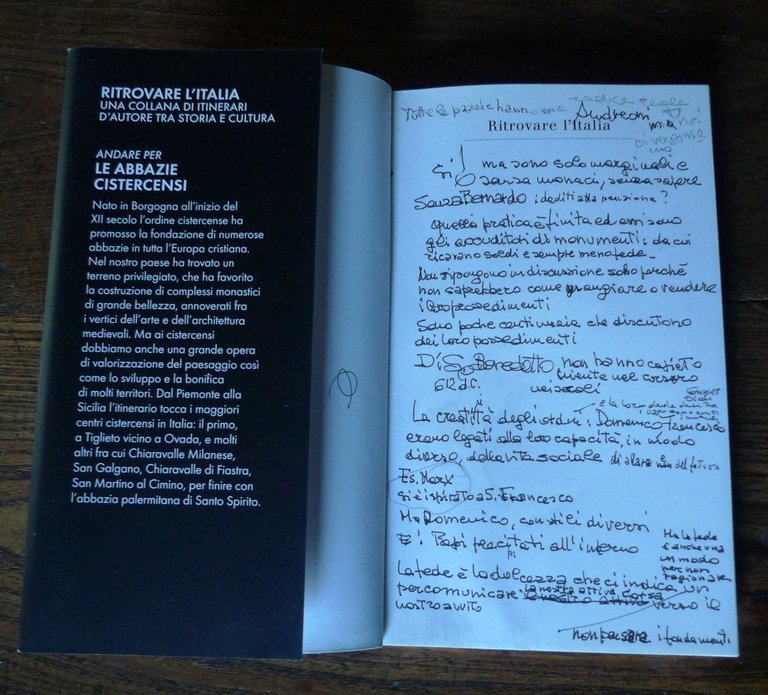 RITROVARE L'ITALIA
UNA COLLANA DI ITINERARI
D'AUTORE TRA STORIA E CULTURA
ANDARE PER
LE ABBAZIE
CISTERCENSI
Nato in Borgogna all'inizio del
XII secolo l'ordine cistercense ha
promosso la fondazione di numerose
abbazie in tutta l'Europa cristiana.
Nel nostro paese ha trovato un
terreno privilegiato, che ha favorito
la costruzione di complessi monastici
di grande bellezza, annoverati fra
i vertici dell'arte e dell'architettura
medievali. Ma ai cistercensi
dobbiamo anche una grande opera
di valorizzazione del paesaggio così
come lo sviluppo e la bonifica
di molti territori. Dal Piemonte alla
Sicilia l'itinerario tocca i maggiori
centri cistercensi in Italia: il primo,
a Tiglieto vicino a Ovada, e molti
altri fra cui Chiaravalle Milanese,
San Galgano, Chiaravalle di Fiastra,
San Martino al Cimino, per finire con
l'abbazia palermitana di Santo Spirito.
Tutte le pazzie hanno una radice reale
Andreoni
Ritrovare l'Italia
ma noi
Si! ma sono solo marginali e
senza monaci, senza sapere
Senza Bernardo i dediti alla pensione?
Quella pratica è finita ed essi sono
gli accuditori di monumenti: da cui
ricavano soldi e sempre meno fede.
Non si pongono in discussione solo perché
non saprebbero come mangiare o vendere
i loro possedimenti
Sono poche centinaia che discutono
dei loro possedimenti
Di S. Benedetto non hanno capito
niente nel corso
612 d.C. nei secoli
La creatività degli ordini: Domenico Francesco
erano legati alla loro capacità, in modo
diverso, della vita sociale di allora e non del futuro
Es, Marx
si è ispirato a S. Francesco
Ma Domenico, con stili diversi
E i Papi precitati all'inferno
Ma la fede
è anche una
un modo
per non
ragionare
La fede è la dolcezza che ci indica un
per comunicare la nostra attiva corsa verso il
nostro
non pensare i fondamenti